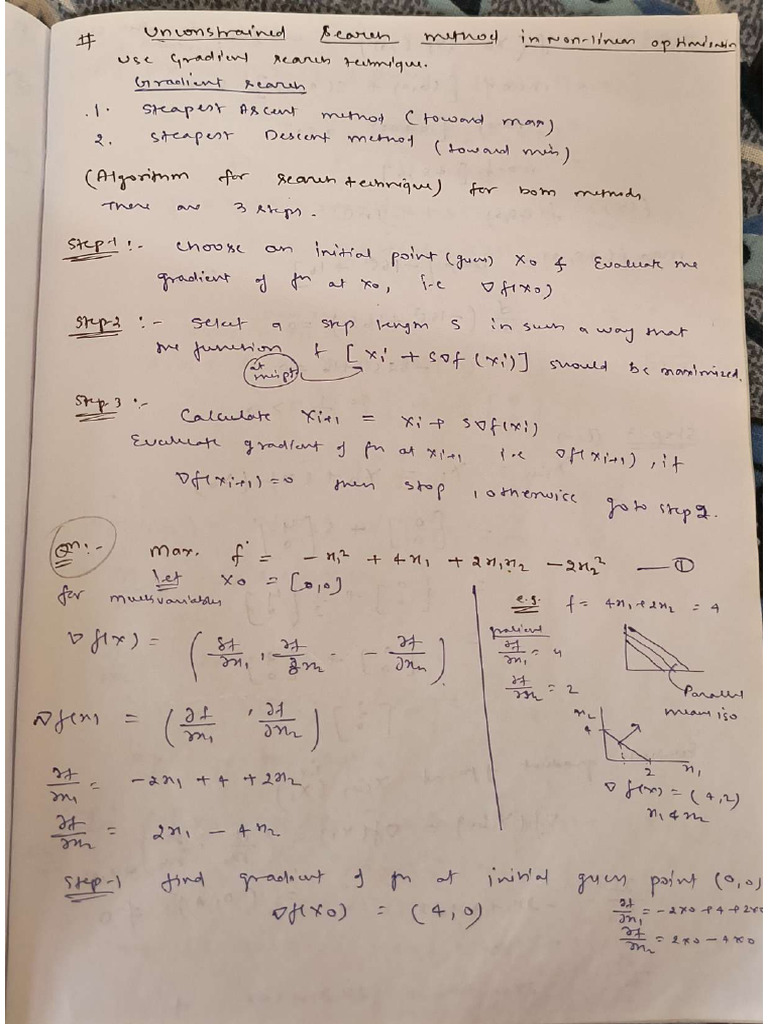 # Unconstrained Search method in non-linear optimisation
Use gradient search technique.
Gradient search
1. Steapest Ascent method (toward max)
2. Steapest Descent method (toward min)
(Algorithm for search technique) for both methods
There are 3 steps.
Step-1 :- choose an initial point (guess) x₀ & Evaluate the
gradient of fn at x₀, i.e ∇f(x₀)
Step-2 :- Select a step length s in such a way that
the function f [xᵢ + s∇f(xᵢ)] should be maximized.
at this pt
Step 3 :- Calculate xᵢ₊₁ = xᵢ + s∇f(xᵢ)
Evaluate gradient of fn at xᵢ₊₁ i.e ∇f(xᵢ₊₁), if
∇f(xᵢ₊₁)=0 then stop, otherwise go to step 2.
Qn:- Max. f = -x₁² + 4x₁ + 2x₁x₂ - 2x₂² — ①
Let x₀ = [0,0]
for multivariables
∇f(x) = (δf/∂x₁, ∂f/∂x₂ - - ∂f/∂xₙ)
∇f(x) = (∂f/∂x₁, ∂f/∂x₂)
∂f/∂x₁ = -2x₁ + 4 + 2x₂
∂f/∂x₂ = 2x₁ - 4x₂
e.g. f = 4x₁ + 2x₂ = 4
gradient
∂f/∂x₁ = 4
∂f/∂x₂ = 2
Parallel
means iso
x₂
4
2 x₁
∇f(x) = (4,2)
x₁ & x₂
Step-1 find gradient of fn at initial guess point (0,0)
∇f(x₀) = (4,0)
∂f/∂x₁ = -2x0 + 4 + 2x0
∂f/∂x₂ = 2x0 - 4x0